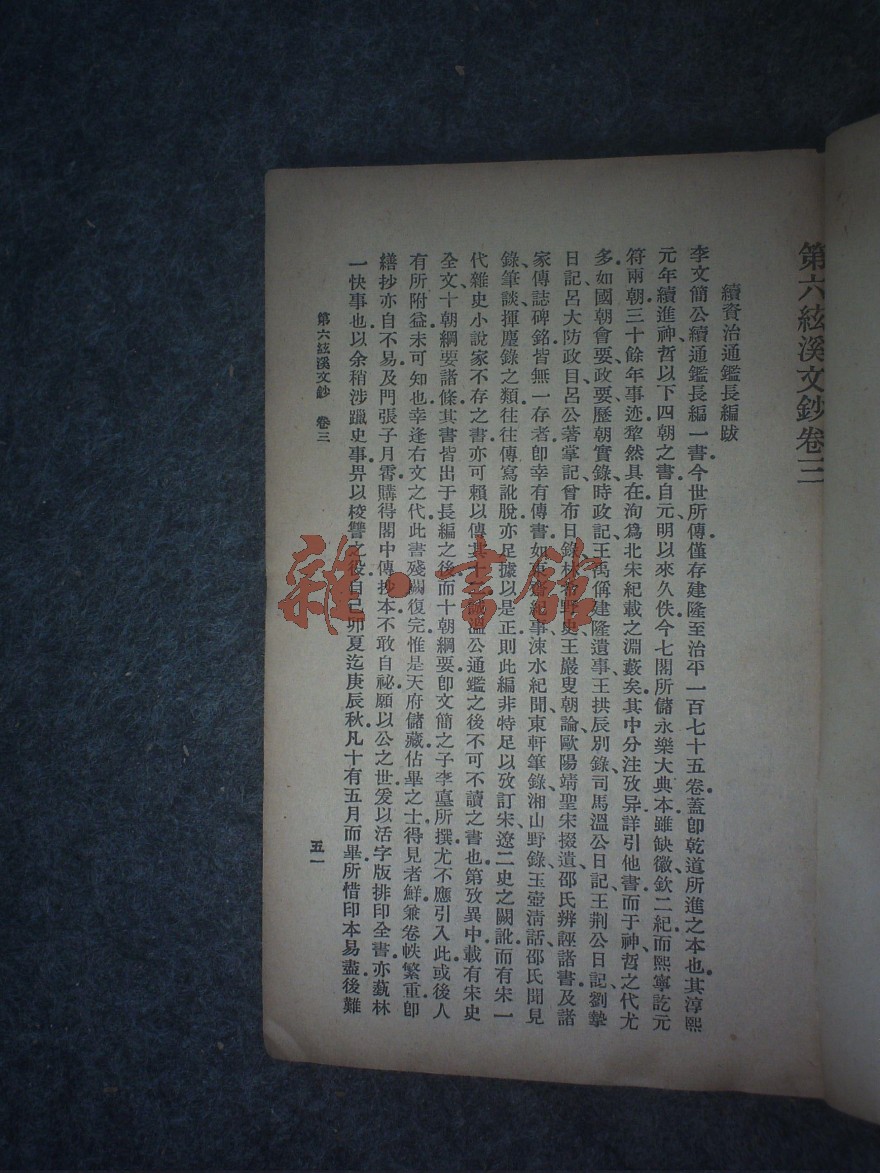 第六絃溪文鈔卷三
續資治通鑑長編跋
李文簡公續通鑑長編一書、今世所傳、僅存建隆至治平一百七十五卷、蓋卽乾道所進之本也。其淳熙
元年續進神哲以下四朝之書。自元明以來久佚。今七閣所儲永樂大典本雖缺徽欽二紀。而熙寧訖元
符兩朝三十餘年事迹犂然具在。洵爲北宋紀載之淵藪矣。其中分注攷异詳引他書。而于神哲之代尤
多。如國朝會要、政要、歷朝實錄、時政記、王禹偁建隆遺事、王拱辰別錄、司馬溫公日記、王荆公日記、劉摯
日記、呂大防政目、呂公著掌記、曾布日錄、林希野史、王巖叟朝論、歐陽靖聖宋掇遺、邵氏辨誣諸書。及諸
家傳誌碑銘。皆無一存者。卽幸有傳書。如東齋紀事、涑水紀聞、東軒筆錄、湘山野錄、玉壺清話、邵氏聞見
錄、筆談、揮麈錄之類。往往傳寫訛脫。亦足據以是正。則此編非特足以攷訂宋遼二史之闕訛。而有宋一
代雜史小說家不存之書。亦可賴以傳其十二。誠溫公通鑑之後不可不讀之書也。第攷異中載有宋史
全文、十朝綱要諸條。其書皆出于長編之後。而十朝綱要卽文簡之子李𡌴所撰。尤不應引入此。或後人
有所附益未可知也。幸逢右文之代。此書殘闕復完。惟是天府儲藏。佔畢之士得見者鮮。兼卷帙繁重。卽
繕抄亦自不易。及門張子月霄。購得閣中傳抄本。不敢自祕。願以公之世。爰以活字版排印全書。亦蓺林
一快事也。以余稍涉躐史事。畀以校讐之役。自己卯夏迄庚辰秋。凡十有五月而畢。所惜印本易盡。後難
第六絃溪文鈔　卷三
五一
雜·書館